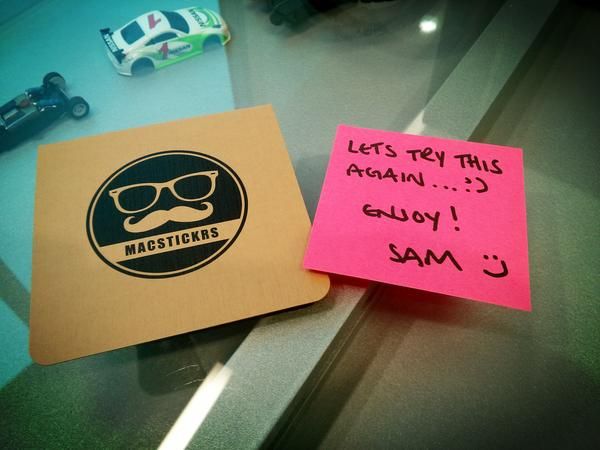 MACSTICKRS
LETS TRY THIS
AGAIN...:)
ENJOY!
SAM :)
1
NISSAN